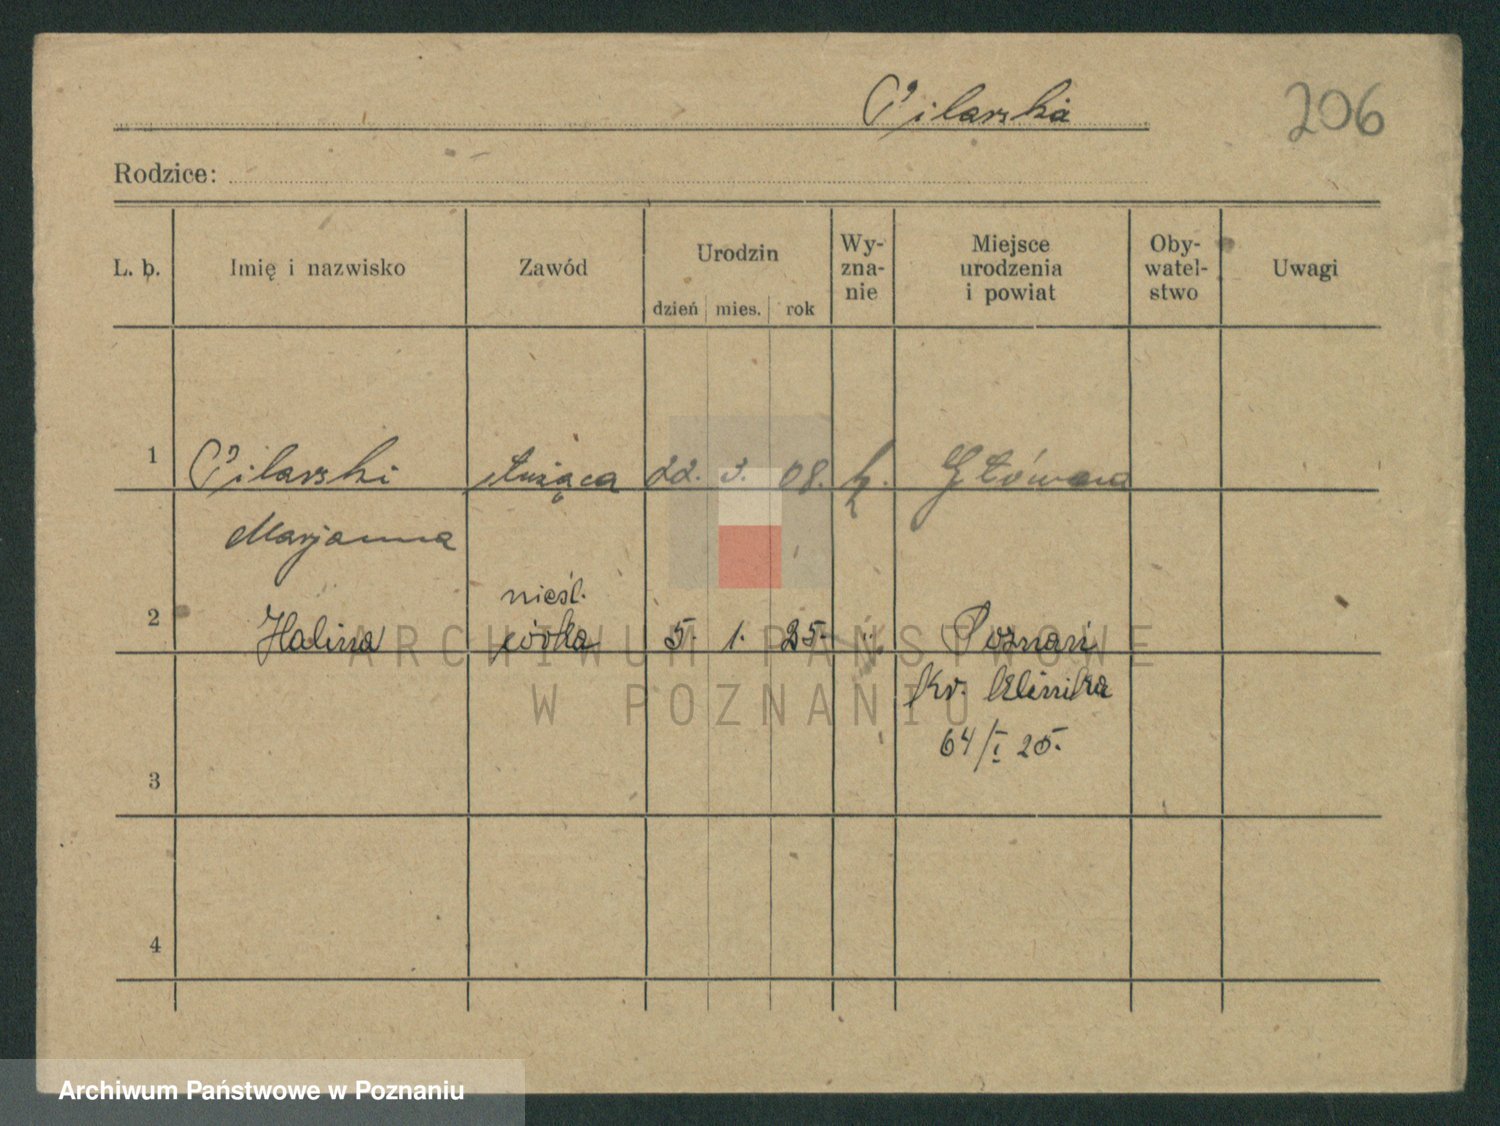 Pilarska
206
Rodzice:
L. b. Imię i nazwisko Zawód Urodzin dzień mies. rok Wy-zna-nie Miejsce urodzenia i powiat Oby-watel-stwo Uwagi
1 Pilarski służąca 22. 3. 08. k. Główna
Marjanna
nieśl.
2 Halina córka 5. 1. 25. " Poznań
Kr. Klinika
64/I 25.
3
4
ARCHIWUM PAŃSTWOWE
W POZNANIU
Archiwum Państwowe w Poznaniu